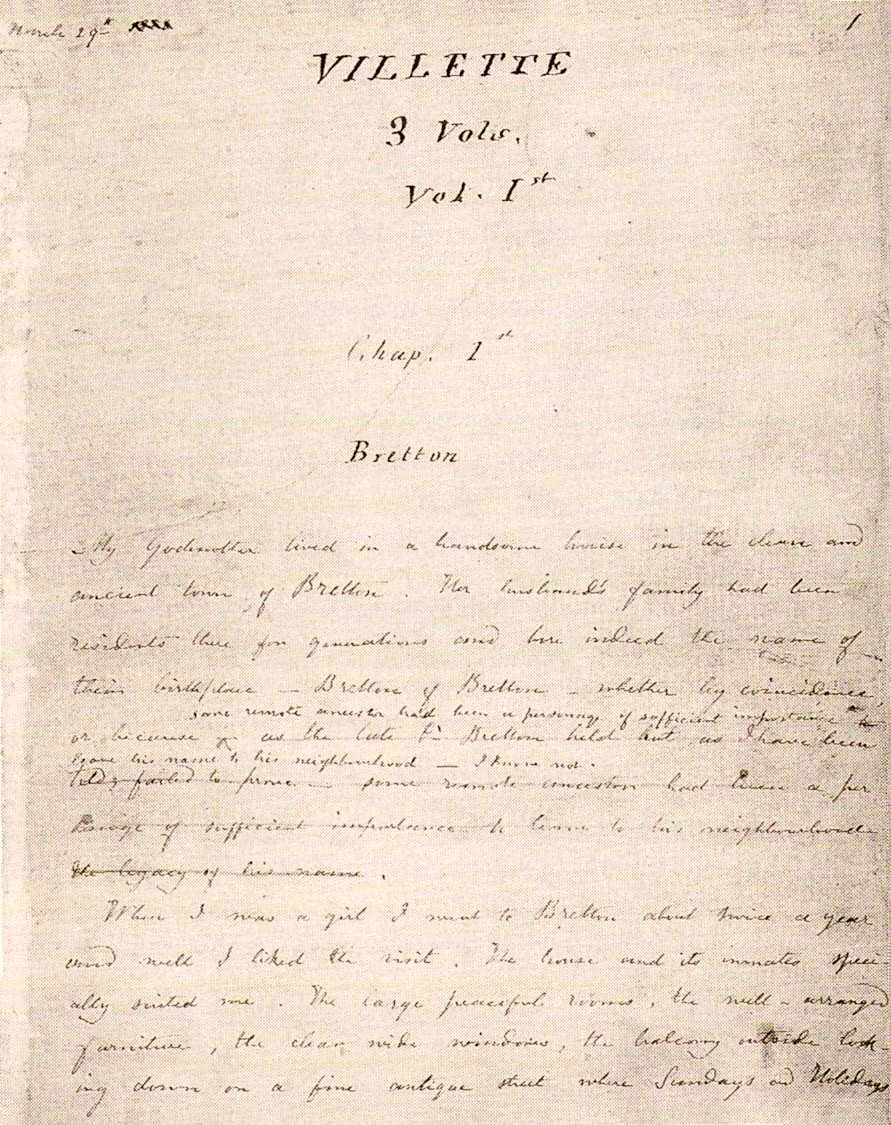 March 29th
1
VILLETTE
3 Vols.
Vol. Ist
Chap. 1st
Bretton
My Godmother lived in a handsome house in the clean and
ancient town of Bretton. Her husband's family had been
residents there for generations and bore indeed the name of
their birthplace — Bretton of Bretton — whether by coincidence,
some remote ancestor had been a personage of sufficient importance to
or because — as the late Dr Bretton held but, as I have been
leave his name to his neighbourhood — I know not.
told, failed to prove — some remote ancestor had been a per
sonage of sufficient importance to leave to his neighbourhood
the legacy of his name.
When I was a girl I went to Bretton about twice a year
and well I liked the visit. The house and its inmates speci-
ally suited me. The large peaceful rooms, the well-arranged
furniture, the clear wide windows, the balcony outside look-
ing down on a fine antique street where Sundays and Holidays